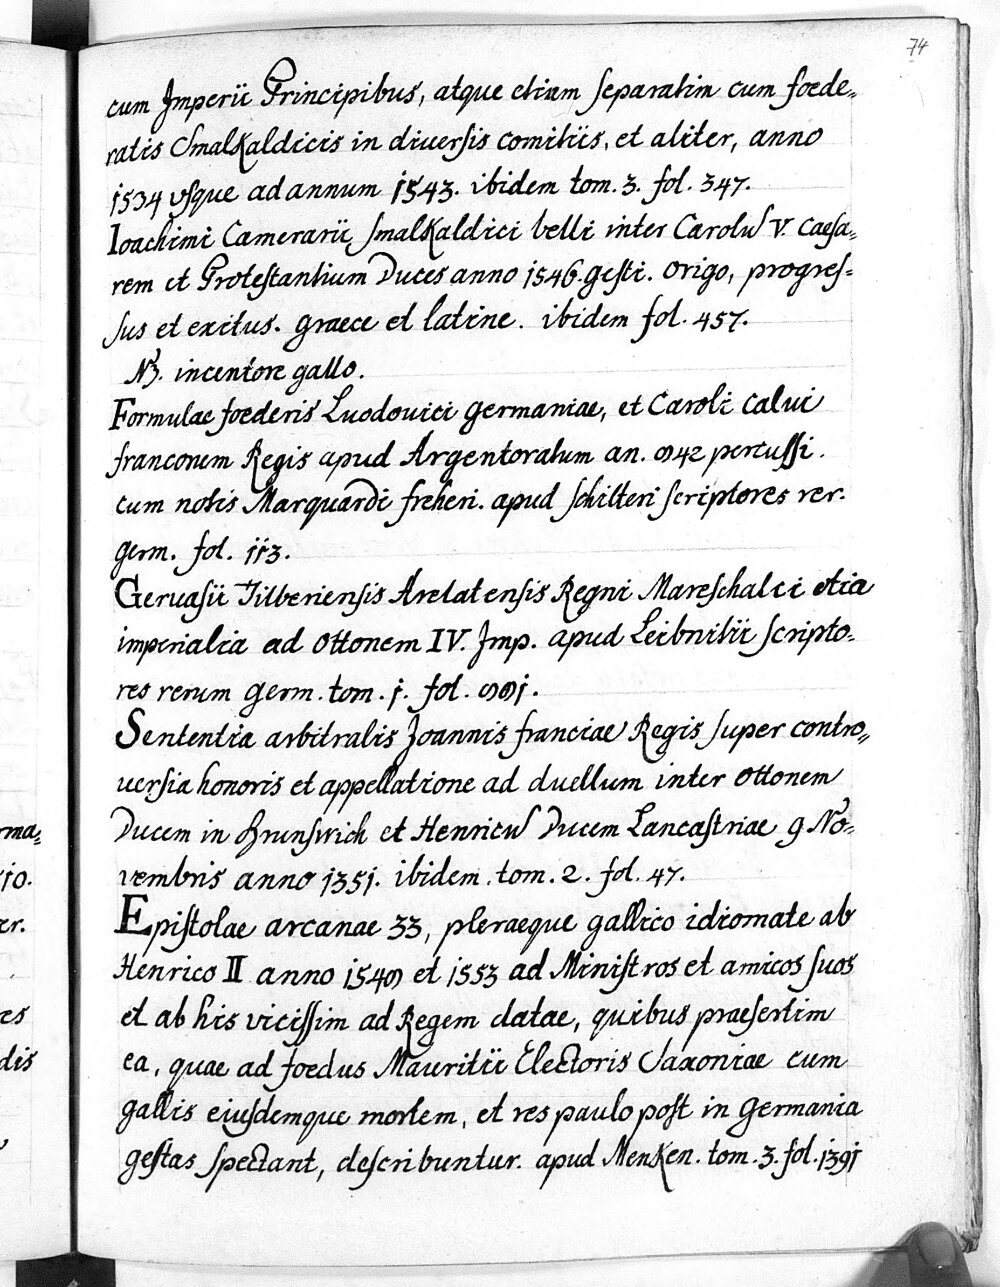 74
cum Imperii Principibus, atque etiam separatim cum foede=
ratis Smalkaldicis in diversis comitiis, et aliter, anno
1534 usque ad annum 1543. ibidem tom. 3. fol. 347.
Ioachimi Camerarii Smalkaldici belli inter Carolu V. Caesa=
rem et Protestantium Duces anno 1546. gesti. Origo, progres=
sus et exitus. graece et latine. ibidem fol. 457.
NB. incentore gallo.
Formulae foederis Luodovici germaniae, et Caroli calui
franconem Regis apud Argentoratum an. 842 percussi.
cum notis Marquardi freheri. apud schilteri scriptores rer.
germ. fol. 113.
Geruasii Tilberiensis Arelatensis Regni Mareschalci otia
imperialia ad Ottonem IV. Imp. apud Leibnitii scripto=
res rerum germ. tom. 1. fol. 881.
Sententia arbitralis Joannis franciae Regis super contro=
uersia honoris et appellatione ad duellum inter Ottonem
Ducem in Brunswich et Henricu Ducem Lancastriae 9 No=
vembris anno 1351. ibidem. tom. 2. fol. 47.
Epistolae arcanae 33, pleraeque gallico idiomate ab
Henrico II anno 1548 et 1553 ad Ministros et amicos suos
et ab his vicissim ad Regem datae, quibus praesertim
ea, quae ad foedus Mauritii Electoris Saxoniae cum
gallis eiusdemque mortem, et res paulo post in germania
gestas spectant, describuntur. apud Menken. tom. 3. fol. 1391
rma=
510.
er.
es
dis